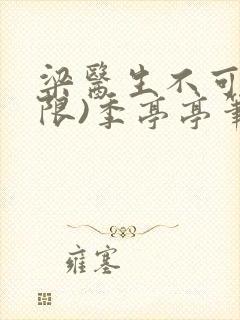 梁醫生不可
限)季亭亭筆
雍塞